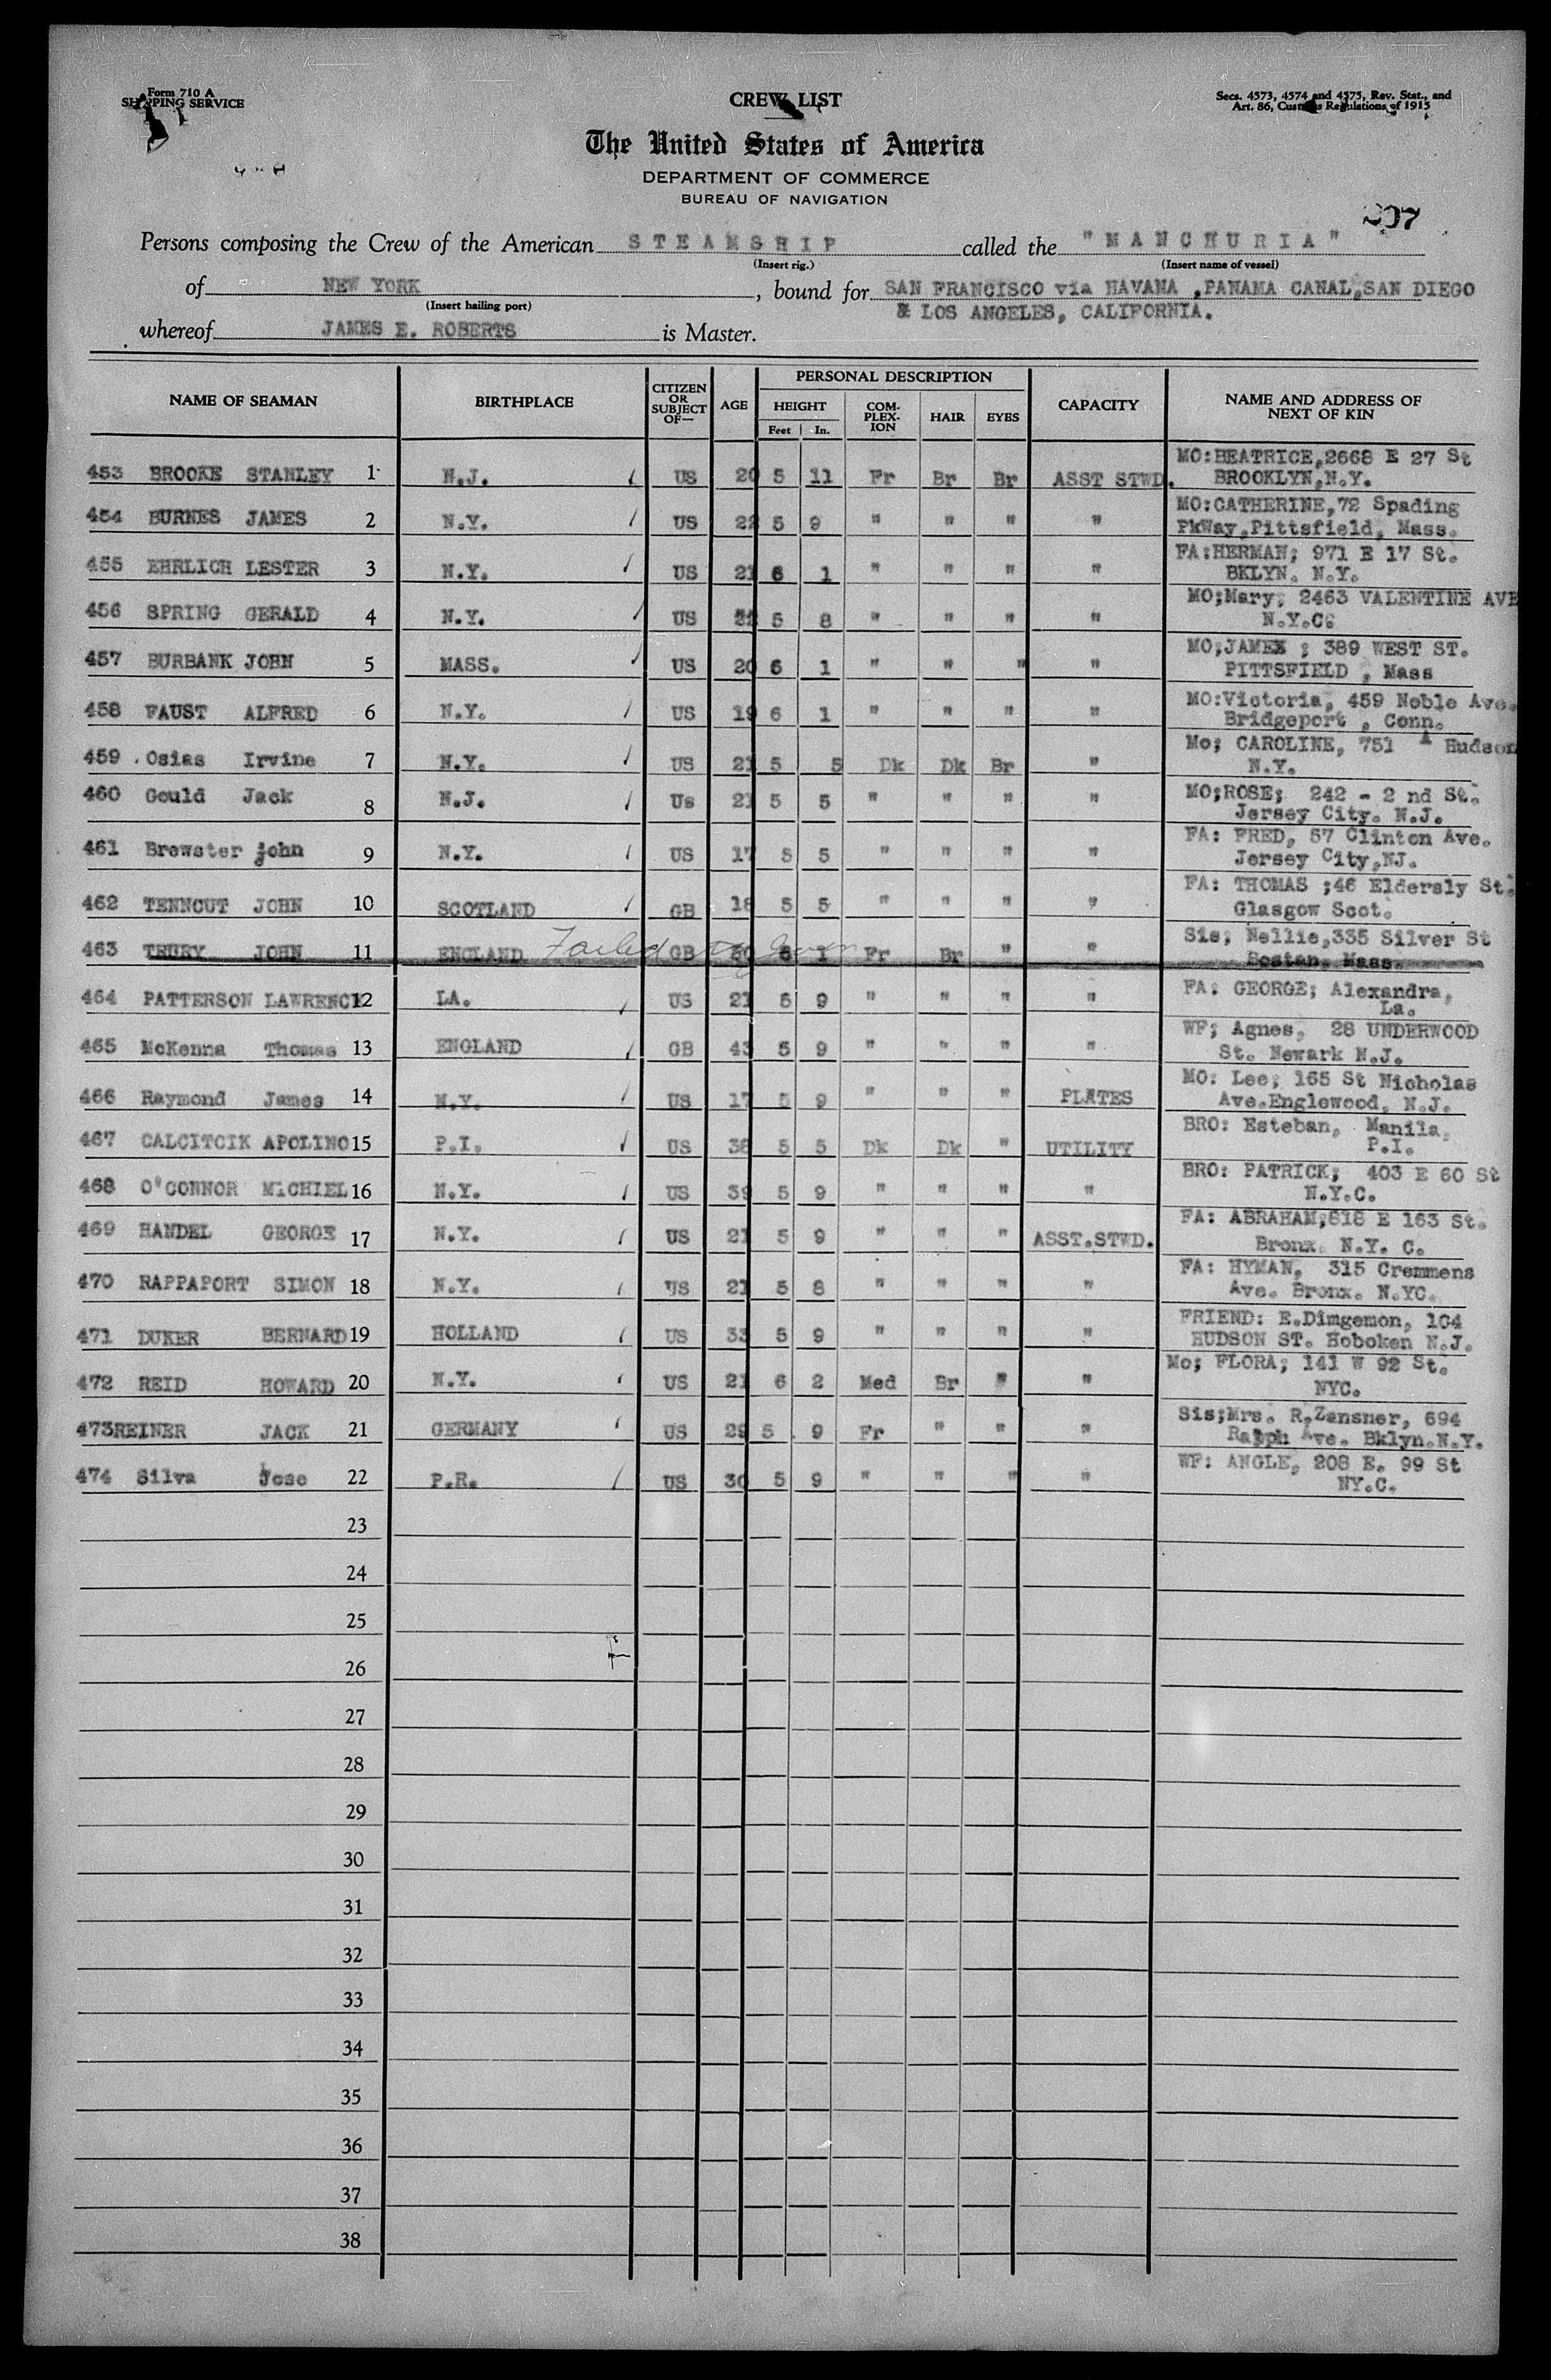 Form 710 A
SHIPPING SERVICE
CREW LIST
Secs. 4573, 4574 and 4575, Rev. Stat., and
Art. 86, Customs Regulations of 1915
The United States of America
DEPARTMENT OF COMMERCE
BUREAU OF NAVIGATION
207
Persons composing the Crew of the American STEAMSHIP called the "MANCHURIA"
(Insert rig.) (Insert name of vessel)
of NEW YORK, bound for SAN FRANCISCO via HAVANA ,PANAMA CANAL,SAN DIEGO
(Insert hailing port) & LOS ANGELES, CALIFORNIA.
whereof JAMES E. ROBERTS is Master.
NAME OF SEAMAN BIRTHPLACE CITIZEN OR SUBJECT OF— AGE PERSONAL DESCRIPTION CAPACITY NAME AND ADDRESS OF NEXT OF KIN
HEIGHT COM-PLEX-ION HAIR EYES
Feet In.
MO:BEATRICE,2668 E 27 St
453 BROOKE STANLEY 1 N.J. US 20 5 11 Fr Br Br ASST STWD. BROOKLYN,N.Y.
MO:CATHERINE,72 Spading
454 BURNES JAMES 2 N.Y. US 22 5 9 " " " " PkWay,Pittsfield, Mass.
FA:HERMAN; 971 E 17 St.
455 EHRLICH LESTER 3 N.Y. US 21 6 1 " " " " BKLYN. N.Y.
MO;Mary; 2463 VALENTINE AVE
456 SPRING GERALD 4 N.Y. US 5 8 " " " " N.Y.C.
MO;JAMES ; 389 WEST ST.
457 BURBANK JOHN 5 MASS. US 20 6 1 " " " " PITTSFIELD , Mass
MO:Victoria, 459 Noble Ave.
458 FAUST ALFRED 6 N.Y. US 19 6 1 " " " " Bridgeport , Conn.
Mo; CAROLINE, 751 A Hudson
459 .Osias Irvine 7 N.Y. US 21 5 5 Dk Dk Br " N.Y.
MO;ROSE; 242 - 2 nd St.
460 Gould Jack 8 N.J. Us 21 5 5 " " " " Jersey City. N.J.
FA: FRED, 57 Clinton Ave.
461 Brewster john 9 N.Y. US 17 5 5 " " " " Jersey City,NJ.
FA: THOMAS ;46 Eldersly St.
462 TENNCUT JOHN 10 SCOTLAND GB 18 5 5 " " " " Glasgow Scot.
Failed to Join
Sis; Nellie,335 Silver St
463 TRURY JOHN 11 ENGLAND GB 6 1 Fr Br " " Boston, Mass.
FA: GEORGE; Alexandra,
464 PATTERSON LAWRENCE 12 LA. US 21 5 9 " " " " La.
WF; Agnes, 28 UNDERWOOD
465 McKenna Thomas 13 ENGLAND GB 43 5 9 " " " " St. Newark N.J.
MO: Lee; 165 St Nicholas
466 Raymond James 14 N.Y. US 17 5 9 " " " PLATES Ave.Englewood, N.J.
BRO: Esteban, Manila,
467 CALCITCIK APOLINO 15 P.I. US 36 5 5 Dk Dk " UTILITY P.I.
BRO: PATRICK; 403 E 60 St
468 O'CONNOR MiCHIEL 16 N.Y. US 39 5 9 " " " " N.Y.C.
FA: ABRAHAM;818 E 163 St.
469 HANDEL GEORGE 17 N.Y. US 21 5 9 " " " ASST.STWD. Bronx. N.Y. C.
FA: HYMAN, 315 Cremmens
470 RAPPAPORT SIMON 18 N.Y. US 21 5 8 " " " " Ave. Bronx. N.YC.
FRIEND: E.Dimgemon, 104
471 DUKER BERNARD 19 HOLLAND US 33 5 9 " " " " HUDSON ST. Hoboken N.J.
Mo; FLORA; 141 W 92 St.
472 REID HOWARD 20 N.Y. US 21 6 2 Med Br " " NYC.
Sis;Mrs. R.Zansner, 694
473REINER JACK 21 GERMANY US 29 5 9 Fr " " " Ralph Ave. Bklyn.N.Y.
WF: ANGLE, 208 E. 99 St
474 Silva Jose 22 P.R. US 30 5 9 " " " " NY.C.
23
24
25
26
27
28
29
30
31
32
33
34
35
36
37
38